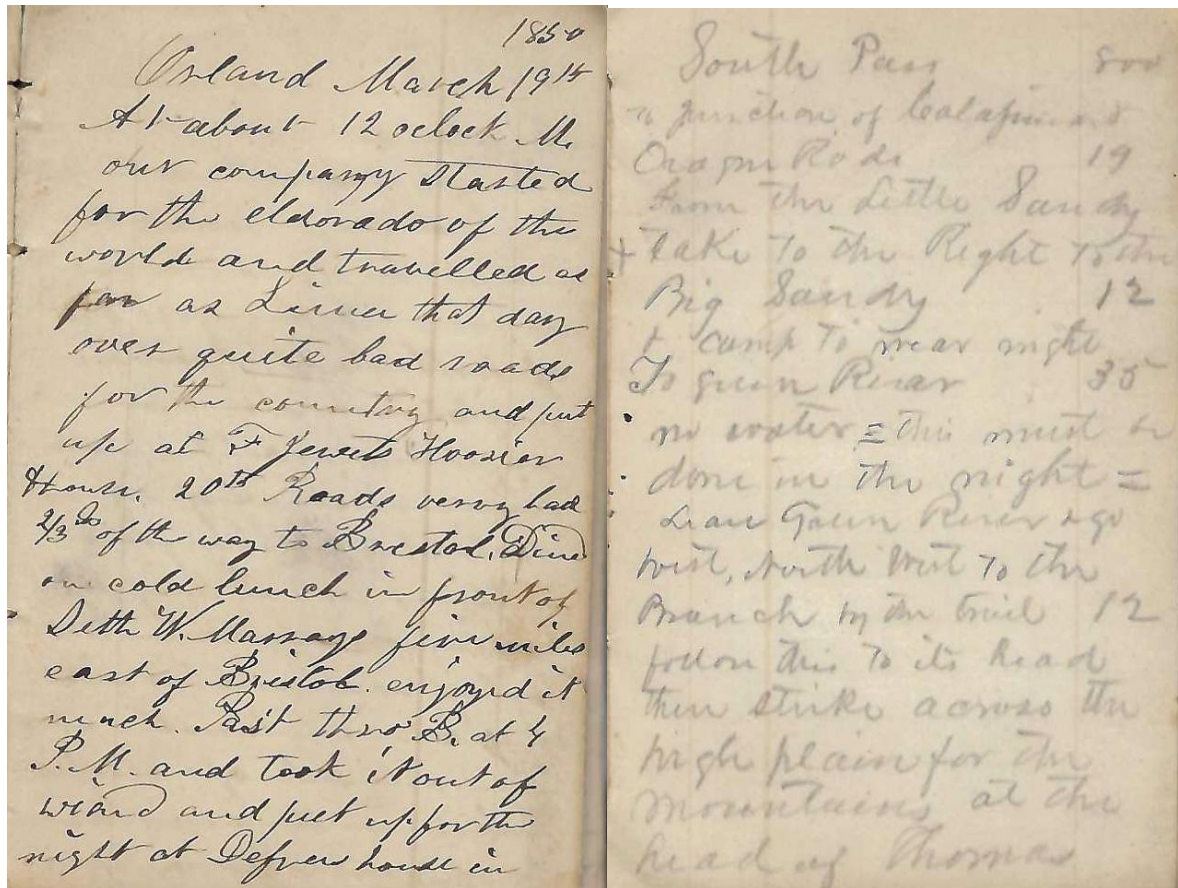 1850
Orland March 19th
At about 12 oclock M.
our company started
for the eldorado of the
world and travelled as
far as Lima that day
over quite bad roads
for the country and put
up at F Jewets Hoosier
House. 20th Roads verry bad
2/3ds of the way to Bristol. Dined
on cold lunch in front of
Seth W. five miles
east of Bristol. enjoyed it
much. Past thro B. at 4
P.M. and took it out of
and put up for the
night at house in
South Pass 800
to junction of
Oragon Rode 19
From the Little Sandy
+ take to the Right to the
Big Sandy 12
+ camp to near night
To green River 35
no water = this must be
done in the night =
Leave Green River + go
West, North West to the
Branch by the trail 12
follow this to its head
then strike across the
high plain for the
mountains at the
head of Thomas